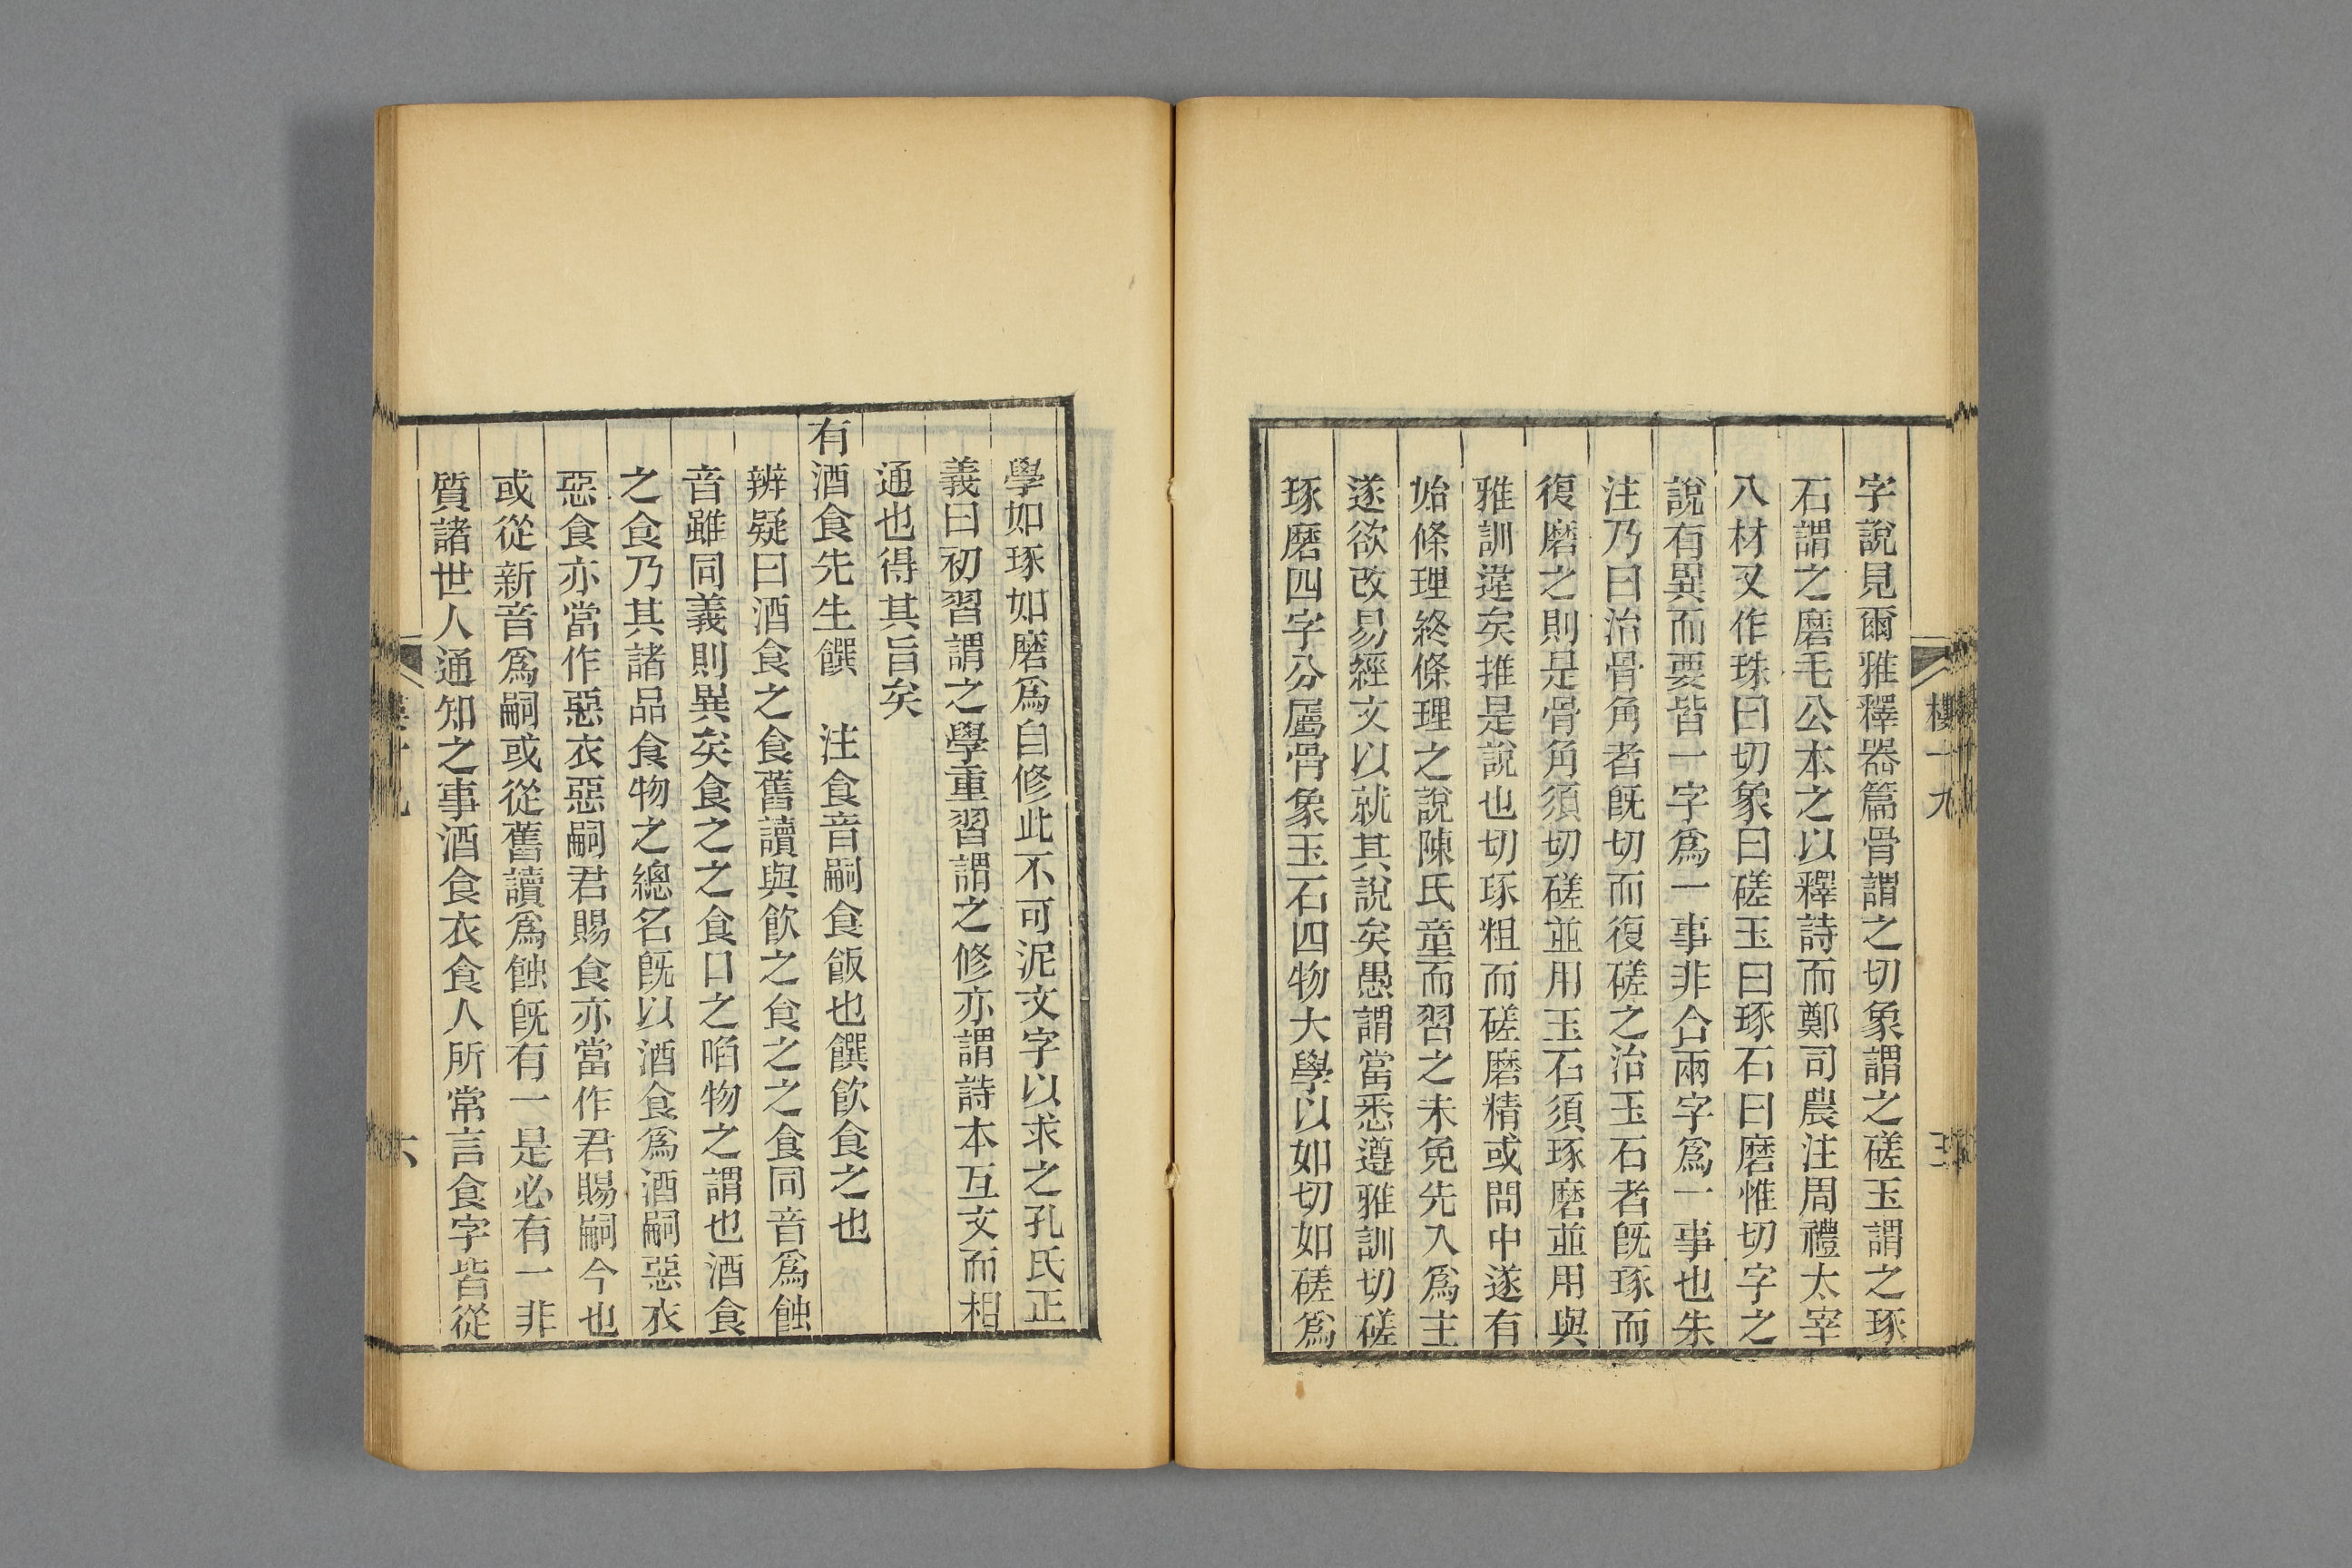 樓十九
字說見爾雅釋器篇骨謂之切象謂之磋玉謂之琢
石謂之磨毛公本之以釋詩而鄭司農注周禮太宰
八材又作珠曰切象曰磋玉曰琢石曰磨惟切字之
說有異而要皆一字爲一事非合兩字爲一事也朱
注乃曰治骨角者旣切而復磋之治玉石者旣琢而
復磨之則是骨角須切磋並用玉石須琢磨並用與
雅訓違矣推是說也切琢粗而磋磨精或問中遂有
始條理終條理之說陳氏童而習之未免先入爲主
遂欲改易經文以就其說矣愚謂當悉遵雅訓切磋
琢磨四字分屬骨象玉石四物大學以如切如磋爲
學如琢如磨爲自修此不可泥文字以求之孔氏正
義曰初習謂之學重習謂之修亦謂詩本互文而相
通也得其旨矣
有酒食先生饌 注食音嗣食飯也饌飲食之也
辨疑曰酒食之食舊讀與飲之食之之食同音爲蝕
音雖同義則異矣食之之食口之啗物之謂也酒食
之食乃其諸品食物之總名旣以酒食爲酒嗣惡衣
惡食亦當作惡衣惡嗣君賜食亦當作君賜嗣今也
或從新音爲嗣或從舊讀爲蝕旣有一是必有一非
質諸世人通知之事酒食衣食人所常言食字皆從
六